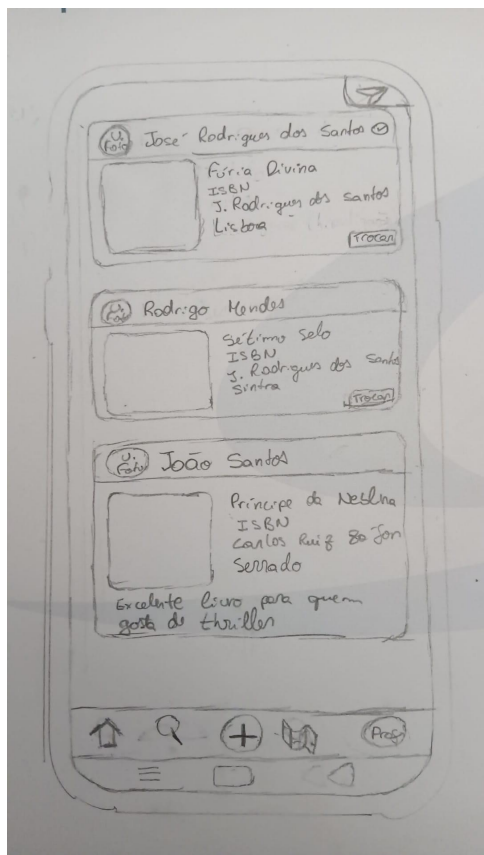 U. José Rodrigues dos Santos
Foto
Fúria Divina
ISBN
J. Rodrigues dos Santos
Lisboa
Trocar
U. Rodrigo Mendes
Fot
Sétimo Selo
ISBN
J. Rodrigues dos Santos
Sintra
Trocar
U. João Santos
Foto
Príncipe da Neblina
ISBN
Carlos Ruiz
Serrado
Excelente livro para quem
gosta de thriller
Prof